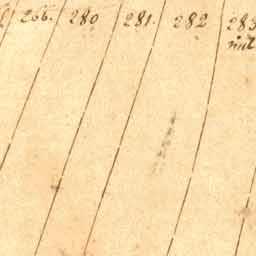 266. 280 281. 282 283
mit